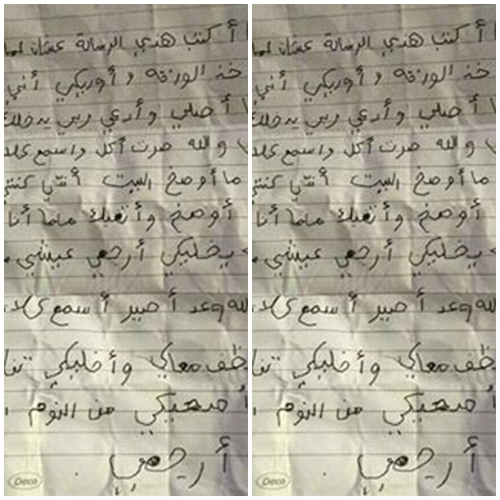 أكتب هذي الرسالة عشان لما
خذ الورقه وأوريكي أني
أصلي وأدعي ربي يدخلك
والله صرت آكل واسمع كلا
ما أوصخ البيت أنتي كنتي
أوصخ وأتعبك ماما أنا
يخليكي أرجعي عيشي
وعد أصير أسمع كلا
معاكي وأخليكي تنا
أصحيكي من النوم
أرجعي
Deco
أكتب هذي الرسالة عشان لما
خذ الورقه وأوريكي أني
أصلي وأدعي ربي يدخلك
والله صرت آكل واسمع كلا
ما أوصخ البيت أنتي كنتي
أوصخ وأتعبك ماما أنا
يخليكي أرجعي عيشي
وعد أصير أسمع كلا
معاكي وأخليكي تنا
أصحيكي من النوم
أرجعي
Deco